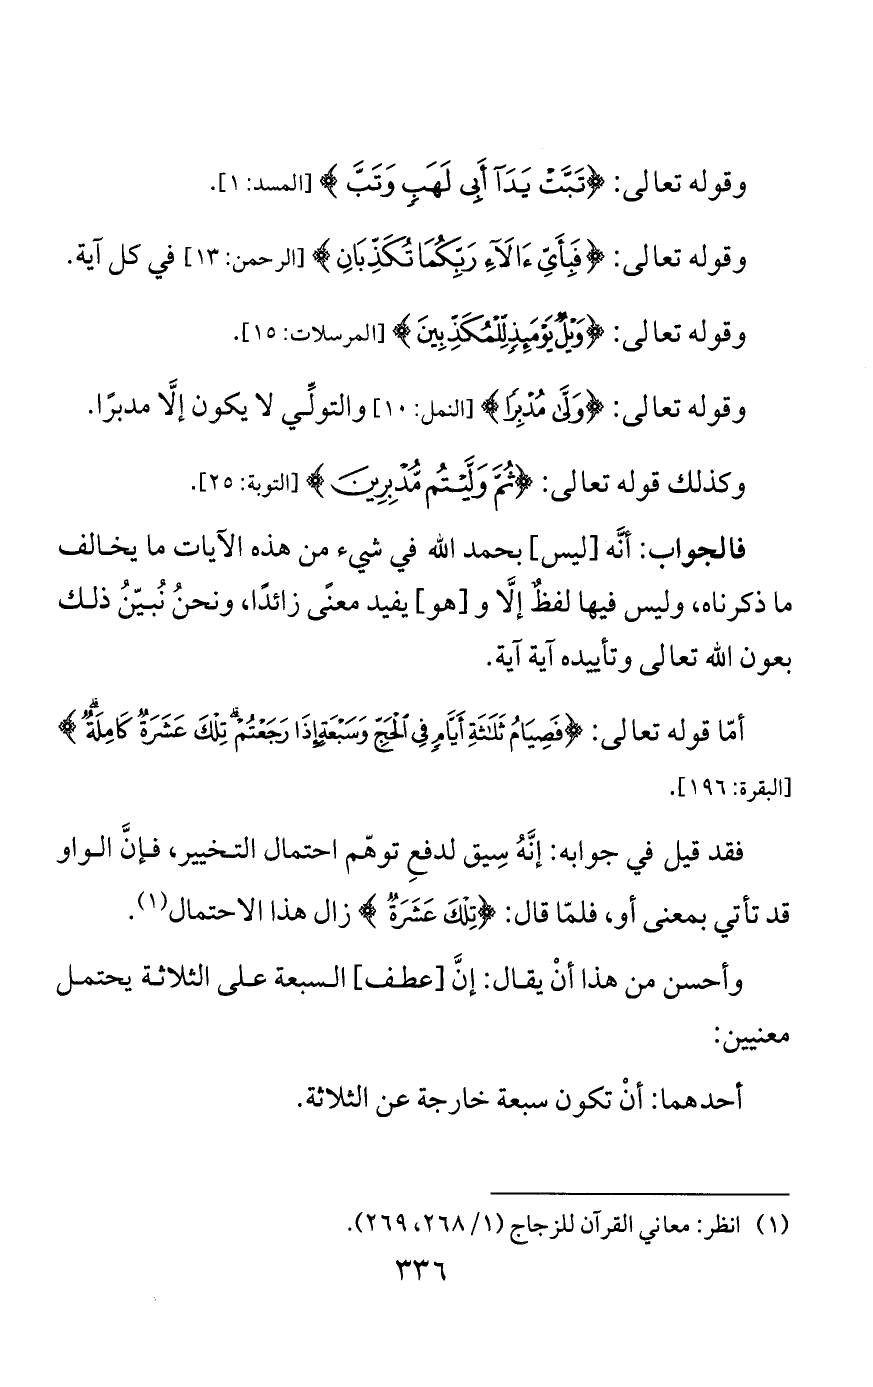 وقوله تعالى: ﴿تَبَّتْ يَدَآ أَبِى لَهَبٍ وَتَبَّ﴾ [المسد: ١].
وقوله تعالى: ﴿فَبِأَىِّ ءَالَآءِ رَبِّكُمَا تُكَذِّبَانِ﴾ [الرحمن: ١٣] في كل آية.
وقوله تعالى: ﴿وَيْلٌ يَوْمَئِذٍ لِّلْمُكَذِّبِينَ﴾ [المرسلات: ١٥].
وقوله تعالى: ﴿وَلَّى مُدْبِرًا﴾ [النمل: ١٠] والتولِّي لا يكون إلَّا مدبرًا.
وكذلك قوله تعالى: ﴿ثُمَّ وَلَّيْتُم مُّدْبِرِينَ﴾ [التوبة: ٢٥].
فالجواب: أنَّه [ليس] بحمد الله في شيء من هذه الآيات ما يخالف
ما ذكرناه، وليس فيها لفظٌ إلَّا و [هو] يفيد معنًى زائدًا، ونحنُ نُبيّنُ ذلك
بعون الله تعالى وتأييده آية آية.
أمّا قوله تعالى: ﴿فَصِيَامُ ثَلَٰثَةِ أَيَّامٍ فِى ٱلْحَجِّ وَسَبْعَةٍ إِذَا رَجَعْتُمْ ۗ تِلْكَ عَشَرَةٌ كَامِلَةٌ ۗ﴾
[البقرة: ١٩٦].
فقد قيل في جوابه: إنَّهُ سِيق لدفعِ توهّم احتمال التخيير، فإنَّ الواو
قد تأتي بمعنى أو، فلمّا قال: ﴿تِلْكَ عَشَرَةٌ﴾ زال هذا الاحتمال(١).
وأحسن من هذا أنْ يقال: إنَّ [عطف] السبعة على الثلاثة يحتمل
معنيين:
أحدهما: أنْ تكون سبعة خارجة عن الثلاثة.
(١) انظر: معاني القرآن للزجاج (١/ ٢٦٨، ٢٦٩).
٣٣٦